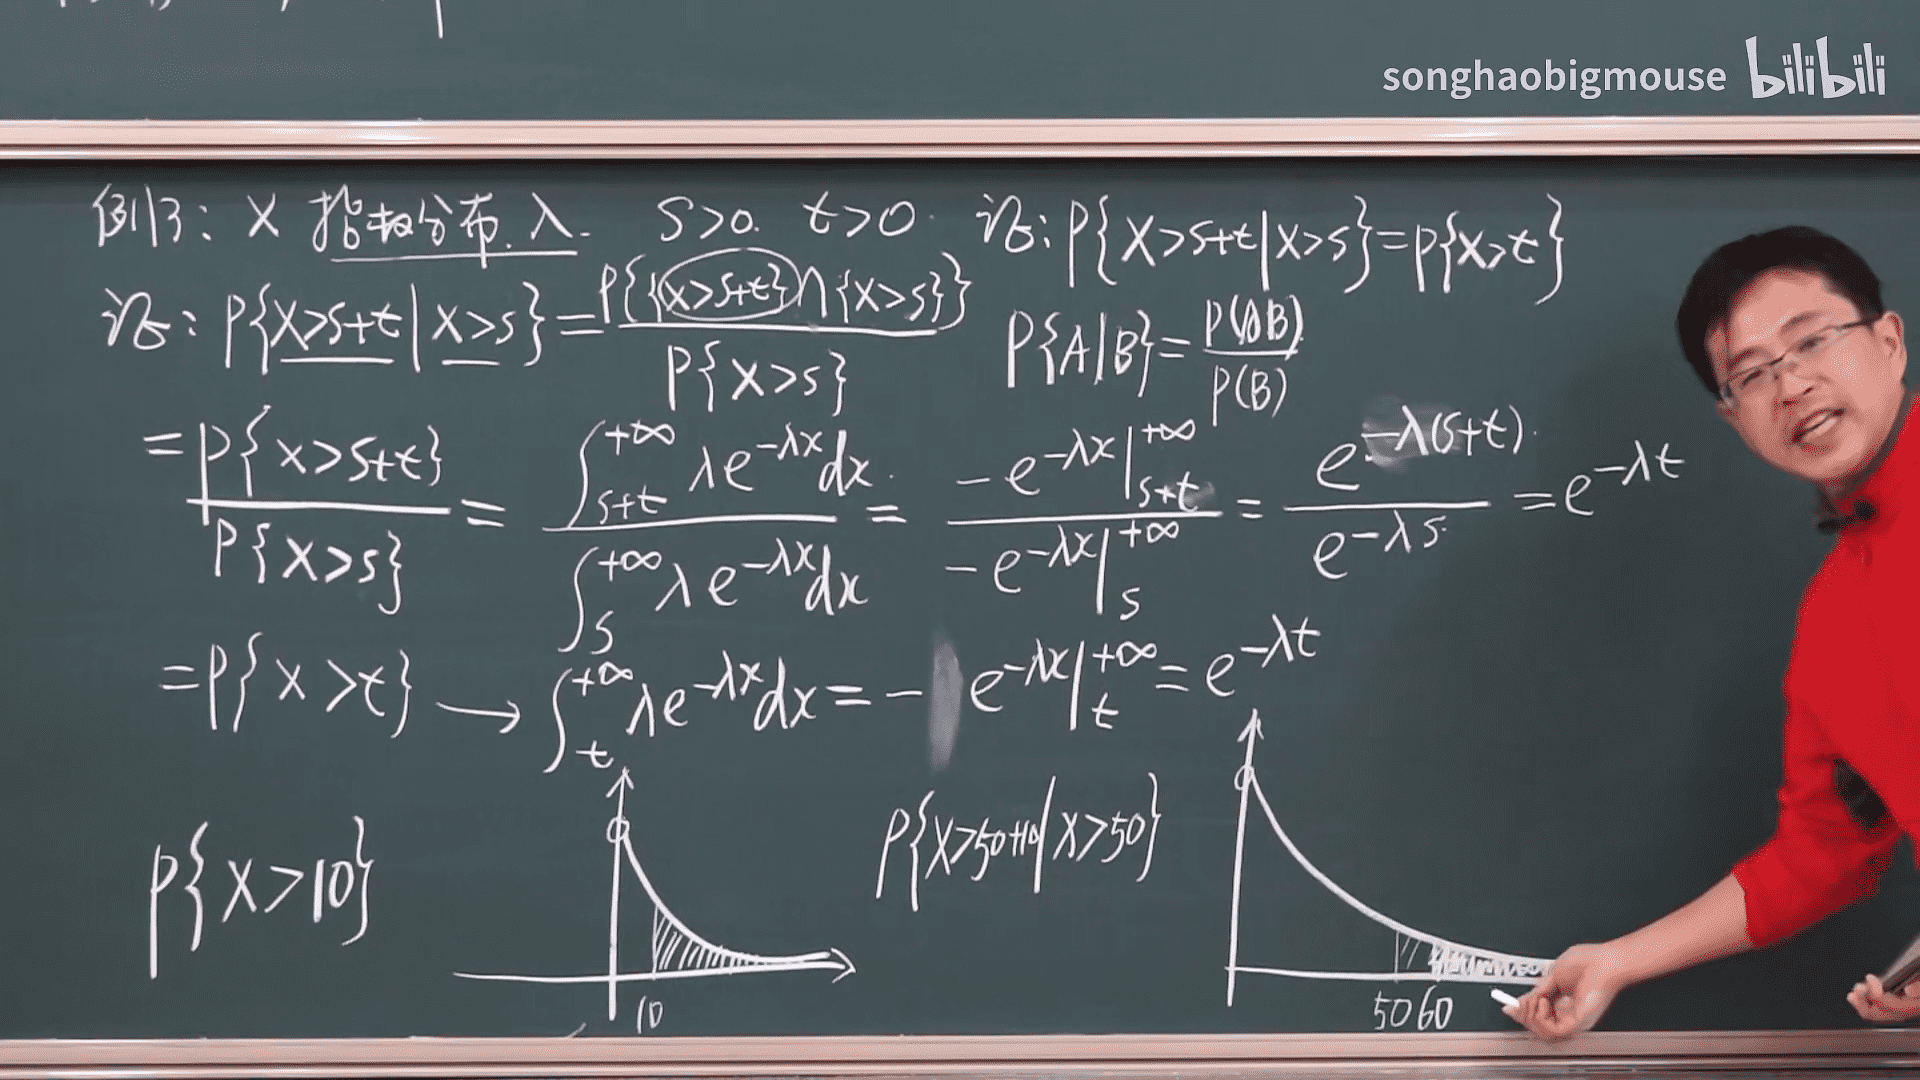 songhaobigmouse bilibili
例3: X 指数分布. λ. S>0. t>0. 证: P{X>s+t|X>s}=P{X>t}
证: P{X>s+t|X>s}=P{{X>s+t}∩{X>s}}/P{X>s} P{A|B}=P(AB)/P(B)
=P{X>s+t}/P{X>s}=∫_{s+t}^{+∞} λe^{-λx}dx/∫_s^{+∞} λe^{-λx}dx=-e^{-λx}|_{s+t}^{+∞}/-e^{-λx}|_s^{+∞}=e^{-λ(s+t)}/e^{-λs}=e^{-λt}
=P{X>t}→∫_t^{+∞} λe^{-λx}dx=-e^{-λx}|_t^{+∞}=e^{-λt}
P{X>10} 10 P{X>50+10|X>50} 50 60